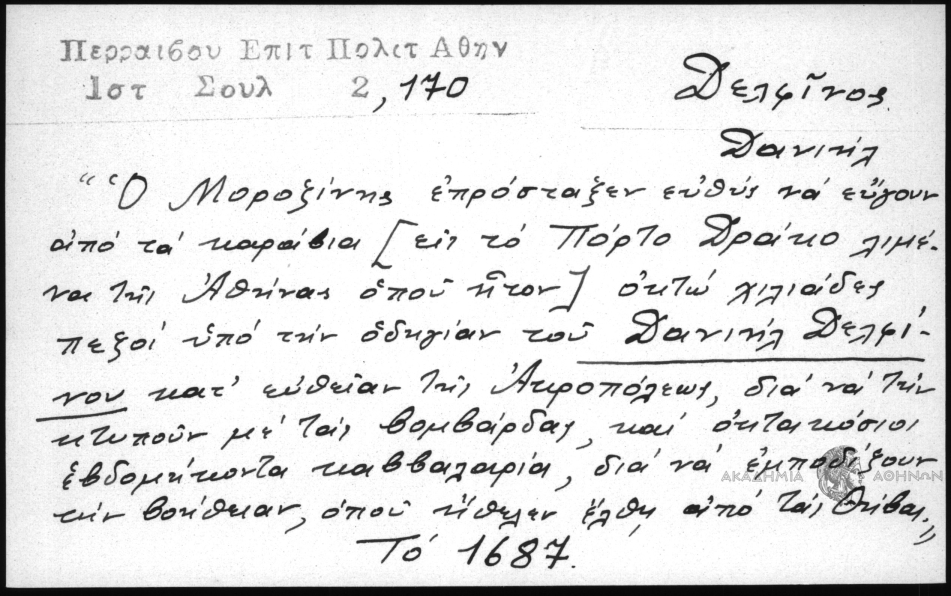 Περραιβου Επιτ Πολιτ Αθην
Ιστ Σουλ 2, 170
Δελφῖνος
Δανιήλ
“Ὁ Μοροζίνης ἐπρόσταξεν εὐθύς νά εὔγουν
ἀπό τά καράβια [εἰς τό Πόρτο Δράκο λιμέ-
να τῆς Ἀθήνας ὁποῦ ἦτον] ὀκτώ χιλιάδες
πεζοί ὑπό τήν ὁδηγίαν τοῦ Δανιήλ Δελφί-
νου κατ' εὐθεῖαν τῆς Ἀκροπόλεως, διά νά τήν
κτυποῦν μέ τάς βομβάρδας, καί ὀκτακόσιοι
ἑβδομήκοντα καββαλαρία, διά νά ἐμποδίζουν
τήν βοήθειαν, ὁποῦ ἤθελεν ἔλθῃ ἀπό τάς Θήβας.„
Τό 1687.
ΑΚΑΔΗΜΙΑ ΑΘΗΝΩΝ